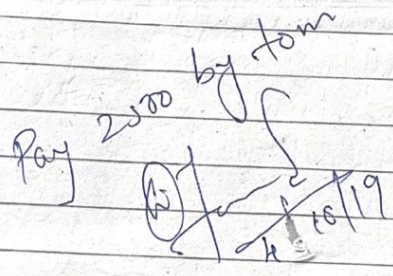 Pay 2000 by tom
4/10/19